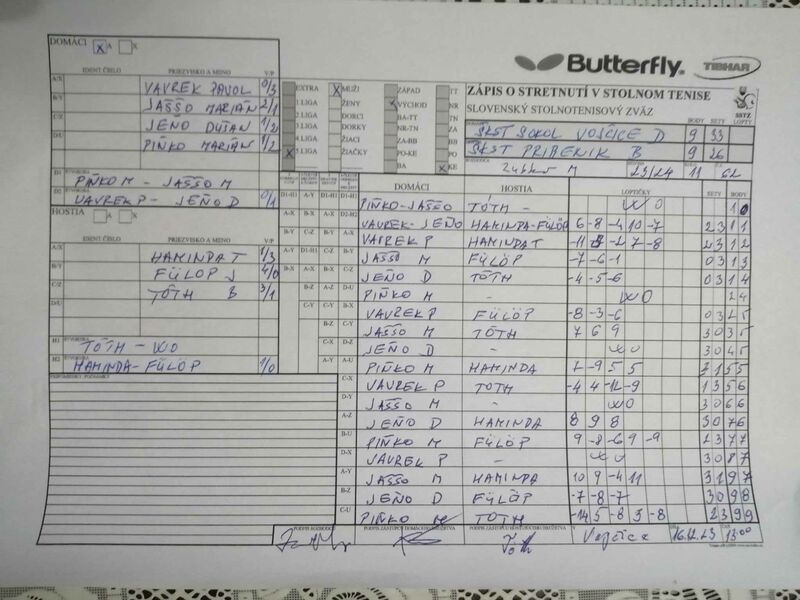 DOMÁCI X A X
Butterfly. TIBHAR
IDENT. ČÍSLO PRIEZVISKO A MENO V/P
A/X VAVREK PAVOL 0/3
B/Y JAŠŠO MARIÁN 2/1
C/Z JEŇO DUŠAN 1/2
D/U PIŇKO MARIÁN 1/2
D1 PIŇKO M - JAŠŠO M
D2 VAVREK P - JEŇO D 0/1
HOSTIA A X
IDENT. ČÍSLO PRIEZVISKO A MENO V/P
A/X HAMINDA T 1/3
B/Y FÜLÖP J 4/0
C/Z TÓTH B 3/1
D/U
H1 TÓTH - WO
H2 HAMINDA - FÜLÖP 1/0
EXTRA X MUŽI ZÁPAD TT
1 LIGA ŽENY X VÝCHOD NR
2 LIGA DORCI BA-TT TN
3 LIGA DORKY NR-TN ZA
4 LIGA ŽIACI ZA-BB BB
X 5 LIGA ŽIAČKY PO-KE PO
BA X KE
ZÁPIS O STRETNUTÍ V STOLNOM TENISE
SLOVENSKÝ STOLNOTENISOVÝ ZVÄZ
SSTZ
BODY SETY LOPTY
ŠKST SOKOL VOJČICE D 9 33
ŠKST PRIBENÍK B 9 26
23/24 11 62
DOMÁCI HOSTIA LOPTIČKY SETY BODY
PIŇKO - JAŠŠO TÓTH - WO 1 0
VAVREK - JEŇO HAMINDA - FÜLÖP 6 -8 -4 10 -7 2 3 1 1
VAVREK P HAMINDA T 2 3 1 2
JAŠŠO M FÜLÖP -7 -6 -1 0 3 1 3
JEŇO D TÓTH -4 -5 -6 0 3 1 4
PIŇKO M - WO 2 4
VAVREK P FÜLÖP -8 -3 -6 0 3 2 5
JAŠŠO M TÓTH 7 6 9 3 0 3 5
JEŇO D - WO 3 0 4 5
PIŇKO M HAMINDA 7 -9 5 5 3 1 5 5
VAVREK P TÓTH -4 4 -12 -9 1 3 5 6
JAŠŠO M - WO 3 0 6 6
JEŇO D HAMINDA 8 9 8 3 0 7 6
PIŇKO M FÜLÖP 9 -8 -6 9 -9 2 3 7 7
VAVREK P - WO 3 0 8 7
JAŠŠO M HAMINDA 10 9 -4 11 3 1 9 7
JEŇO D FÜLÖP -7 -8 -7 3 0 9 8
PIŇKO M TÓTH -14 5 -8 3 -8 2 3 9 9
PODPIS ROZHODCU PODPIS ZÁSTUPCU DOMÁCEHO DRUŽSTVA PODPIS ZÁSTUPCU HOSŤUJÚCEHO DRUŽSTVA
Vojčice 16.12.23 13:00